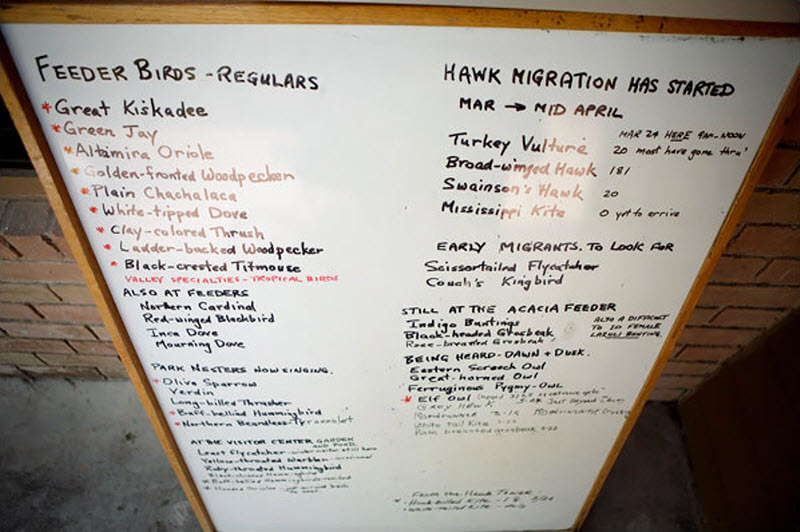 FEEDER BIRDS - REGULARS
* Great Kiskadee
* Green Jay
* Altamira Oriole
* Golden-fronted Woodpecker
* Plain Chachalaca
* White-tipped Dove
* Clay-colored Thrush
* Ladder-backed Woodpecker
* Black-crested Titmouse
VALLEY SPECIALTIES - TROPICAL BIRDS
ALSO AT FEEDERS
Northern Cardinal
Red-winged Blackbird
Inca Dove
Mourning Dove
PARK NESTERS NOW SINGING.
* Olive Sparrow
Verdin
Long-billed Thrasher
* Buff-bellied Hummingbird
* Northern Beardless-Tyrannulet
AT THE VISITOR CENTER GARDEN AND POND
Least Flycatcher - still here
Yellow-throated Warbler
Ruby-throated Hummingbird
Black-chinned Hummingbird
* Buff-bellied Hummingbird
* Hooded Oriole
HAWK MIGRATION HAS STARTED
MAR → MID APRIL
MAR 24 HERE 9AM-NOON
Turkey Vulture 20 most have gone thru'
Broad-winged Hawk 181
Swainson's Hawk 20
Mississippi Kite 0 yet to arrive
EARLY MIGRANTS. TO LOOK FOR
Scissortailed Flycatcher
Couch's Kingbird
STILL AT THE ACACIA FEEDER
Indigo Buntings
Black-headed Grosbeak
Rose-breasted Grosbeak
ALSO A DIFFICULT
TO ID FEMALE
LAZULI BUNTING.
BEING HEARD - DAWN + DUSK.
Eastern Screech Owl
Great-horned Owl
Ferruginous Pygmy-Owl
* Elf Owl
Gray Hawk
Roadrunner
White tail Kite
Rose breasted grosbeak
From the Hawk Tower
* Hook-billed Kite
* White-tailed Kite